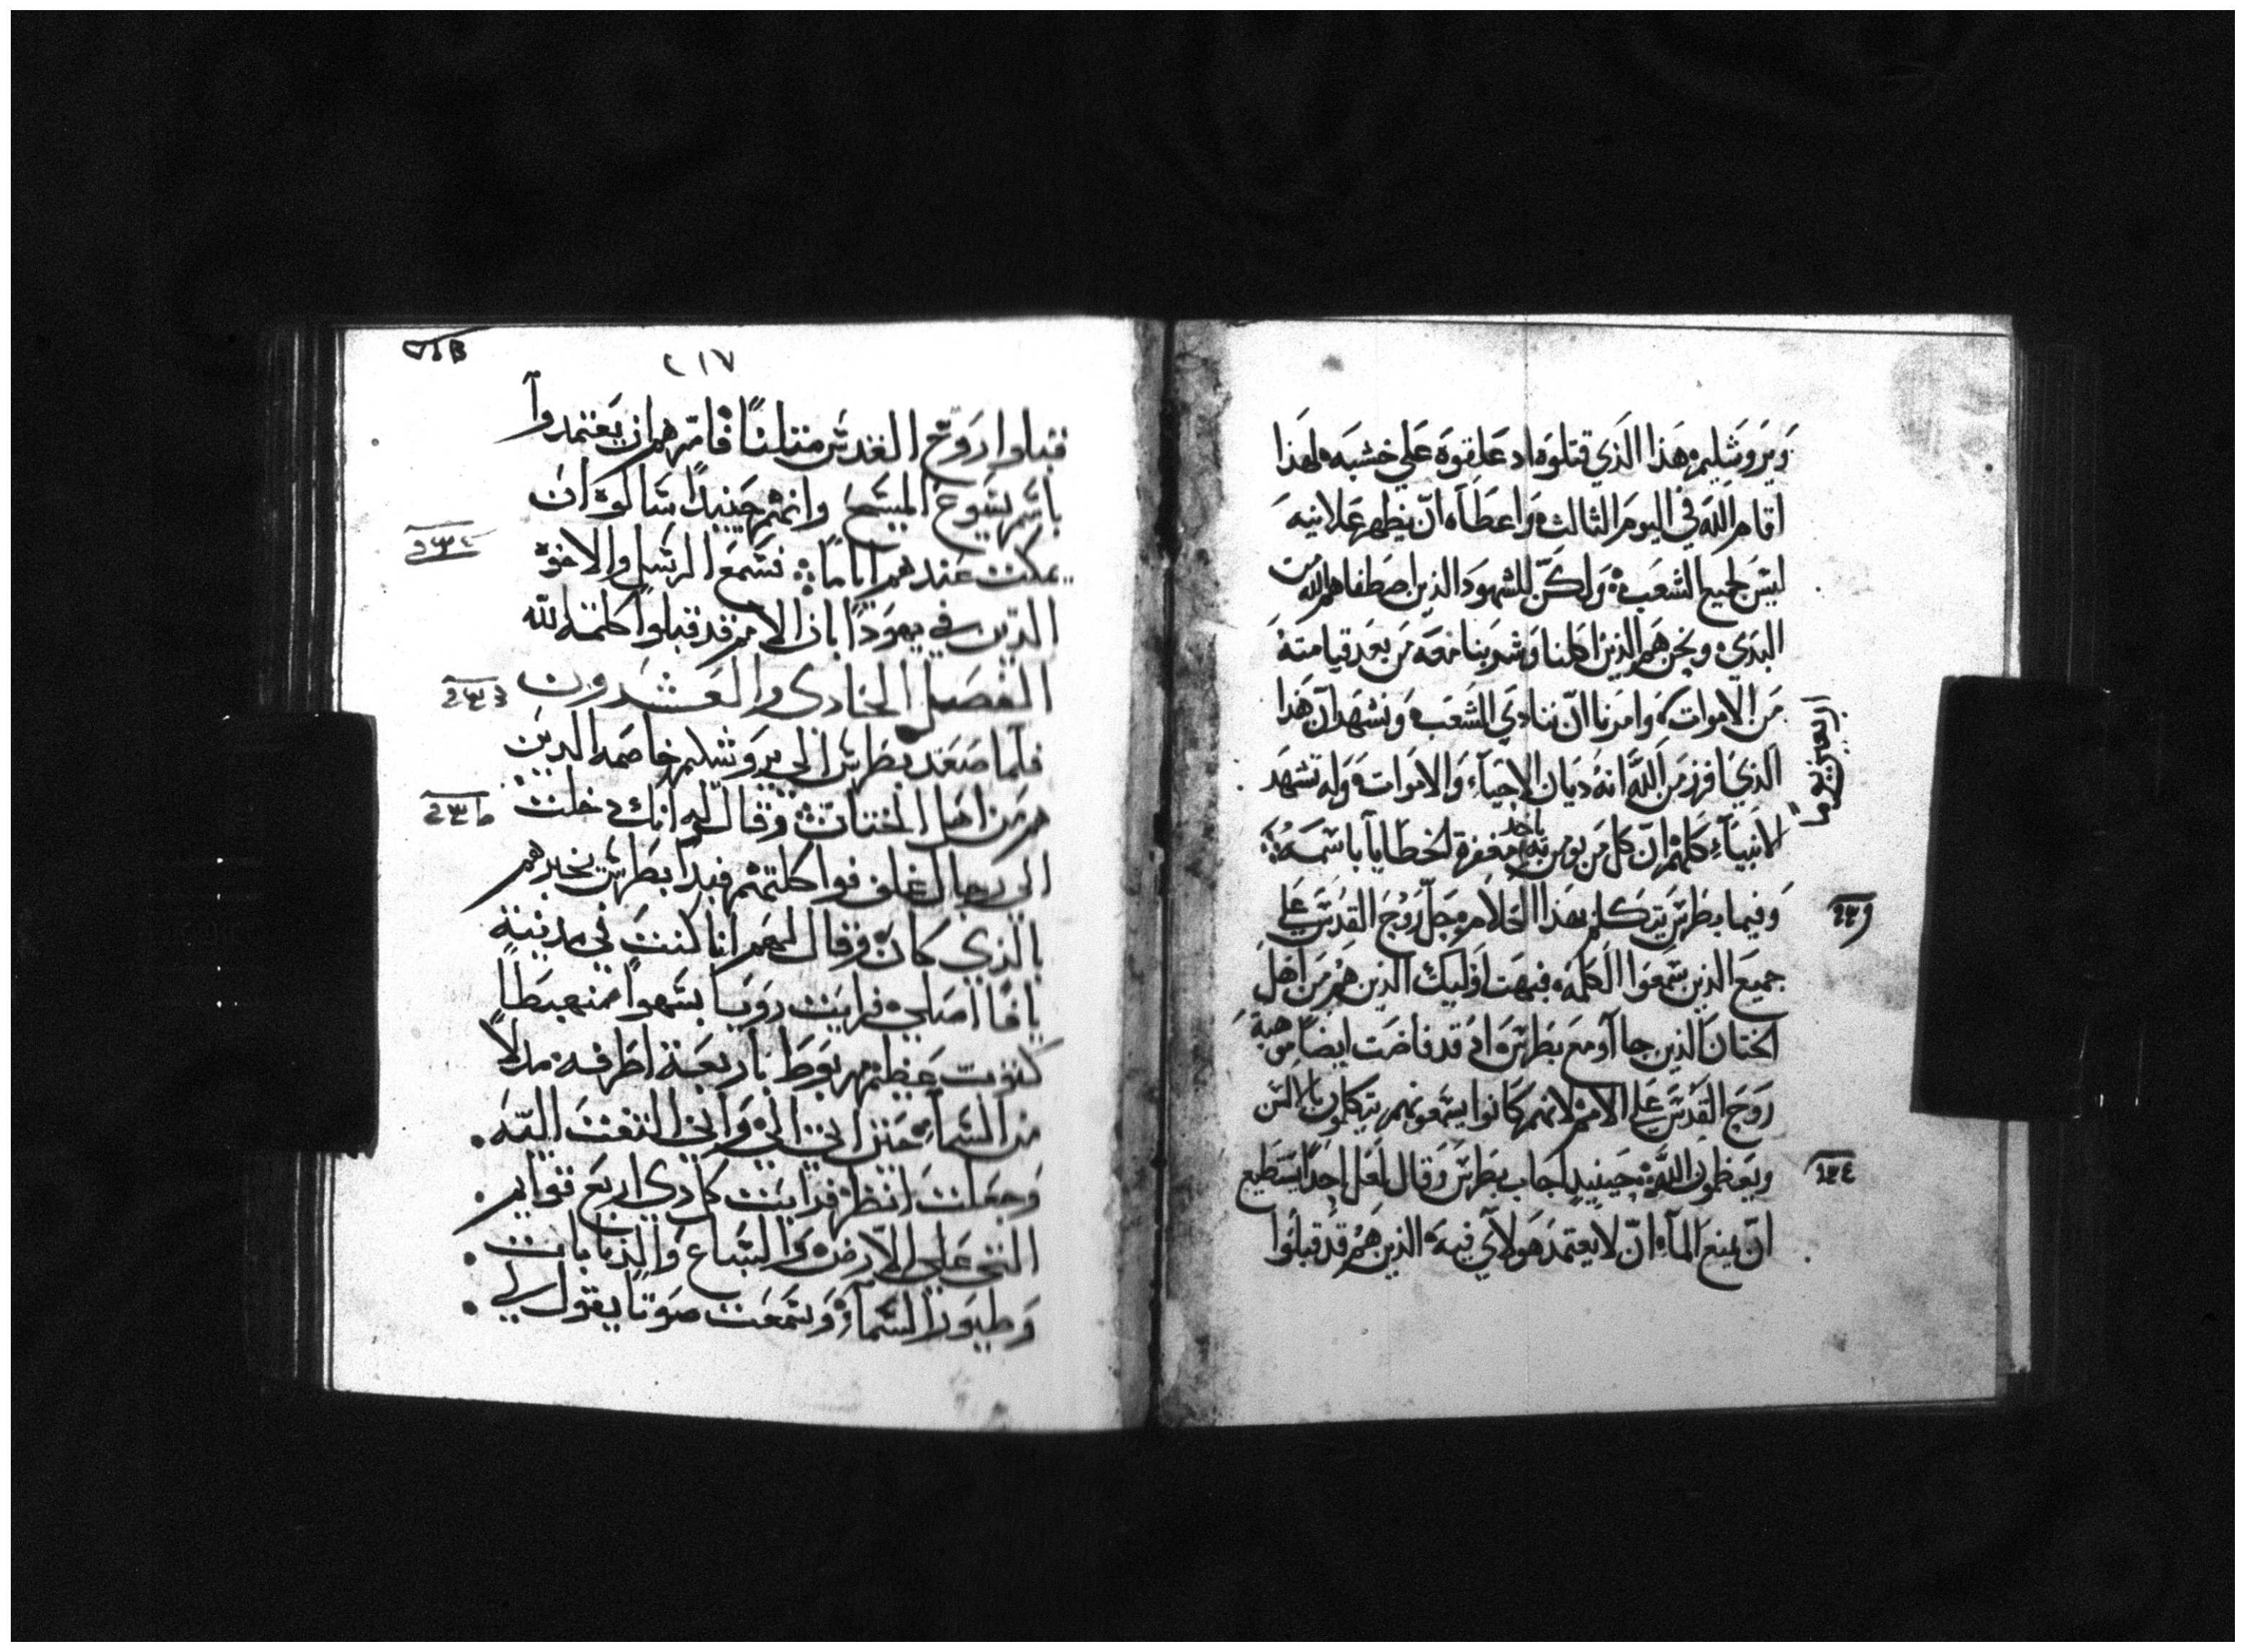 ويروشليم هذا الذي قتلوه اد علقوه علي خشبه لهذا
اقام الله في اليوم الثالث واعطاه ان يظهر علانيه
ليس لجميع الشعب ولكن للشهود الذين اصطفاهم الله من
البدي ونحن هم الذين اكلنا وشربنا معه من بعد قيامته
من الاموات وامرنا ان ننادي الشعب ونشهد ان هذا
الذي افرز من الله انه ديان الاحياء والاموات وله تشهد
الانبياء كلهم ان كل من يومن به ياخد مغفرة الخطايا باسمه
وفيما بطرس يتكلم بهذا الكلام حل روح القدس علي
جميع الذين سمعوا الكلمه فبهت اوليك الذين هم من اهل
الختان الذين جااو مع بطرس اد قد فاضت ايضا من هبة
روح القدس علي الامم لانهم كانوا يسمعونهم يتكلون بالالسن
ويعظمون الله حينيد اجاب بطرس وقال لعل احدا يستطيع
ان يمنع الماء ان لا يعتمد هولاي فيه الذين هم قد قبلوا
اربعين يوما
٢١٧
قبلوا روح القدس متلنا فامرهم ان يعتمدوا
باسم يسوع المسيح وانهم حينيدا سالوه ان
يمكت عندهم اياما فسمع الرسل والاخوة
الذين في يهودا بان الامم قد قبلوا كلمة الله
الفصل الحادي والعشرون
فلما صعد بطرس الي يروشليم خاصمه الدين
هم من اهل الختان وقالوا له انك دخلت
الي رجال غلف واكلت معهم فبدا بطرس يخبرهم
بالذي كان وقال لهم انا كنت في مدينة
يافا اصلي فرايت رويا بسهوا منهبطا
كتوب عظيم مربوط باربعة اطرافه مدلا
من السماء حتي اتي الي واني التفت اليه
وجعلت انظر فرايت كل دي اربع قوايم
التي علي الارض والسباع والذبابات
وطيور السماء وسمعت صوتا يقول لي